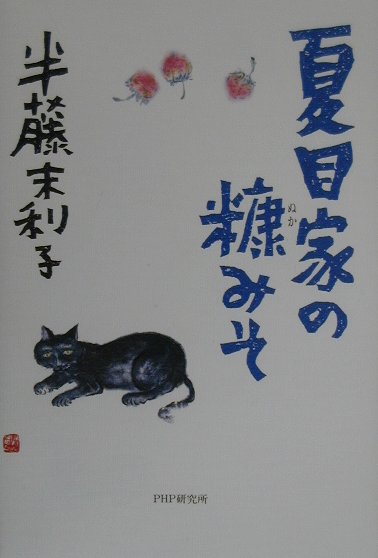 夏目家の
糠みそ
ぬか
半藤末利子
PHP研究所